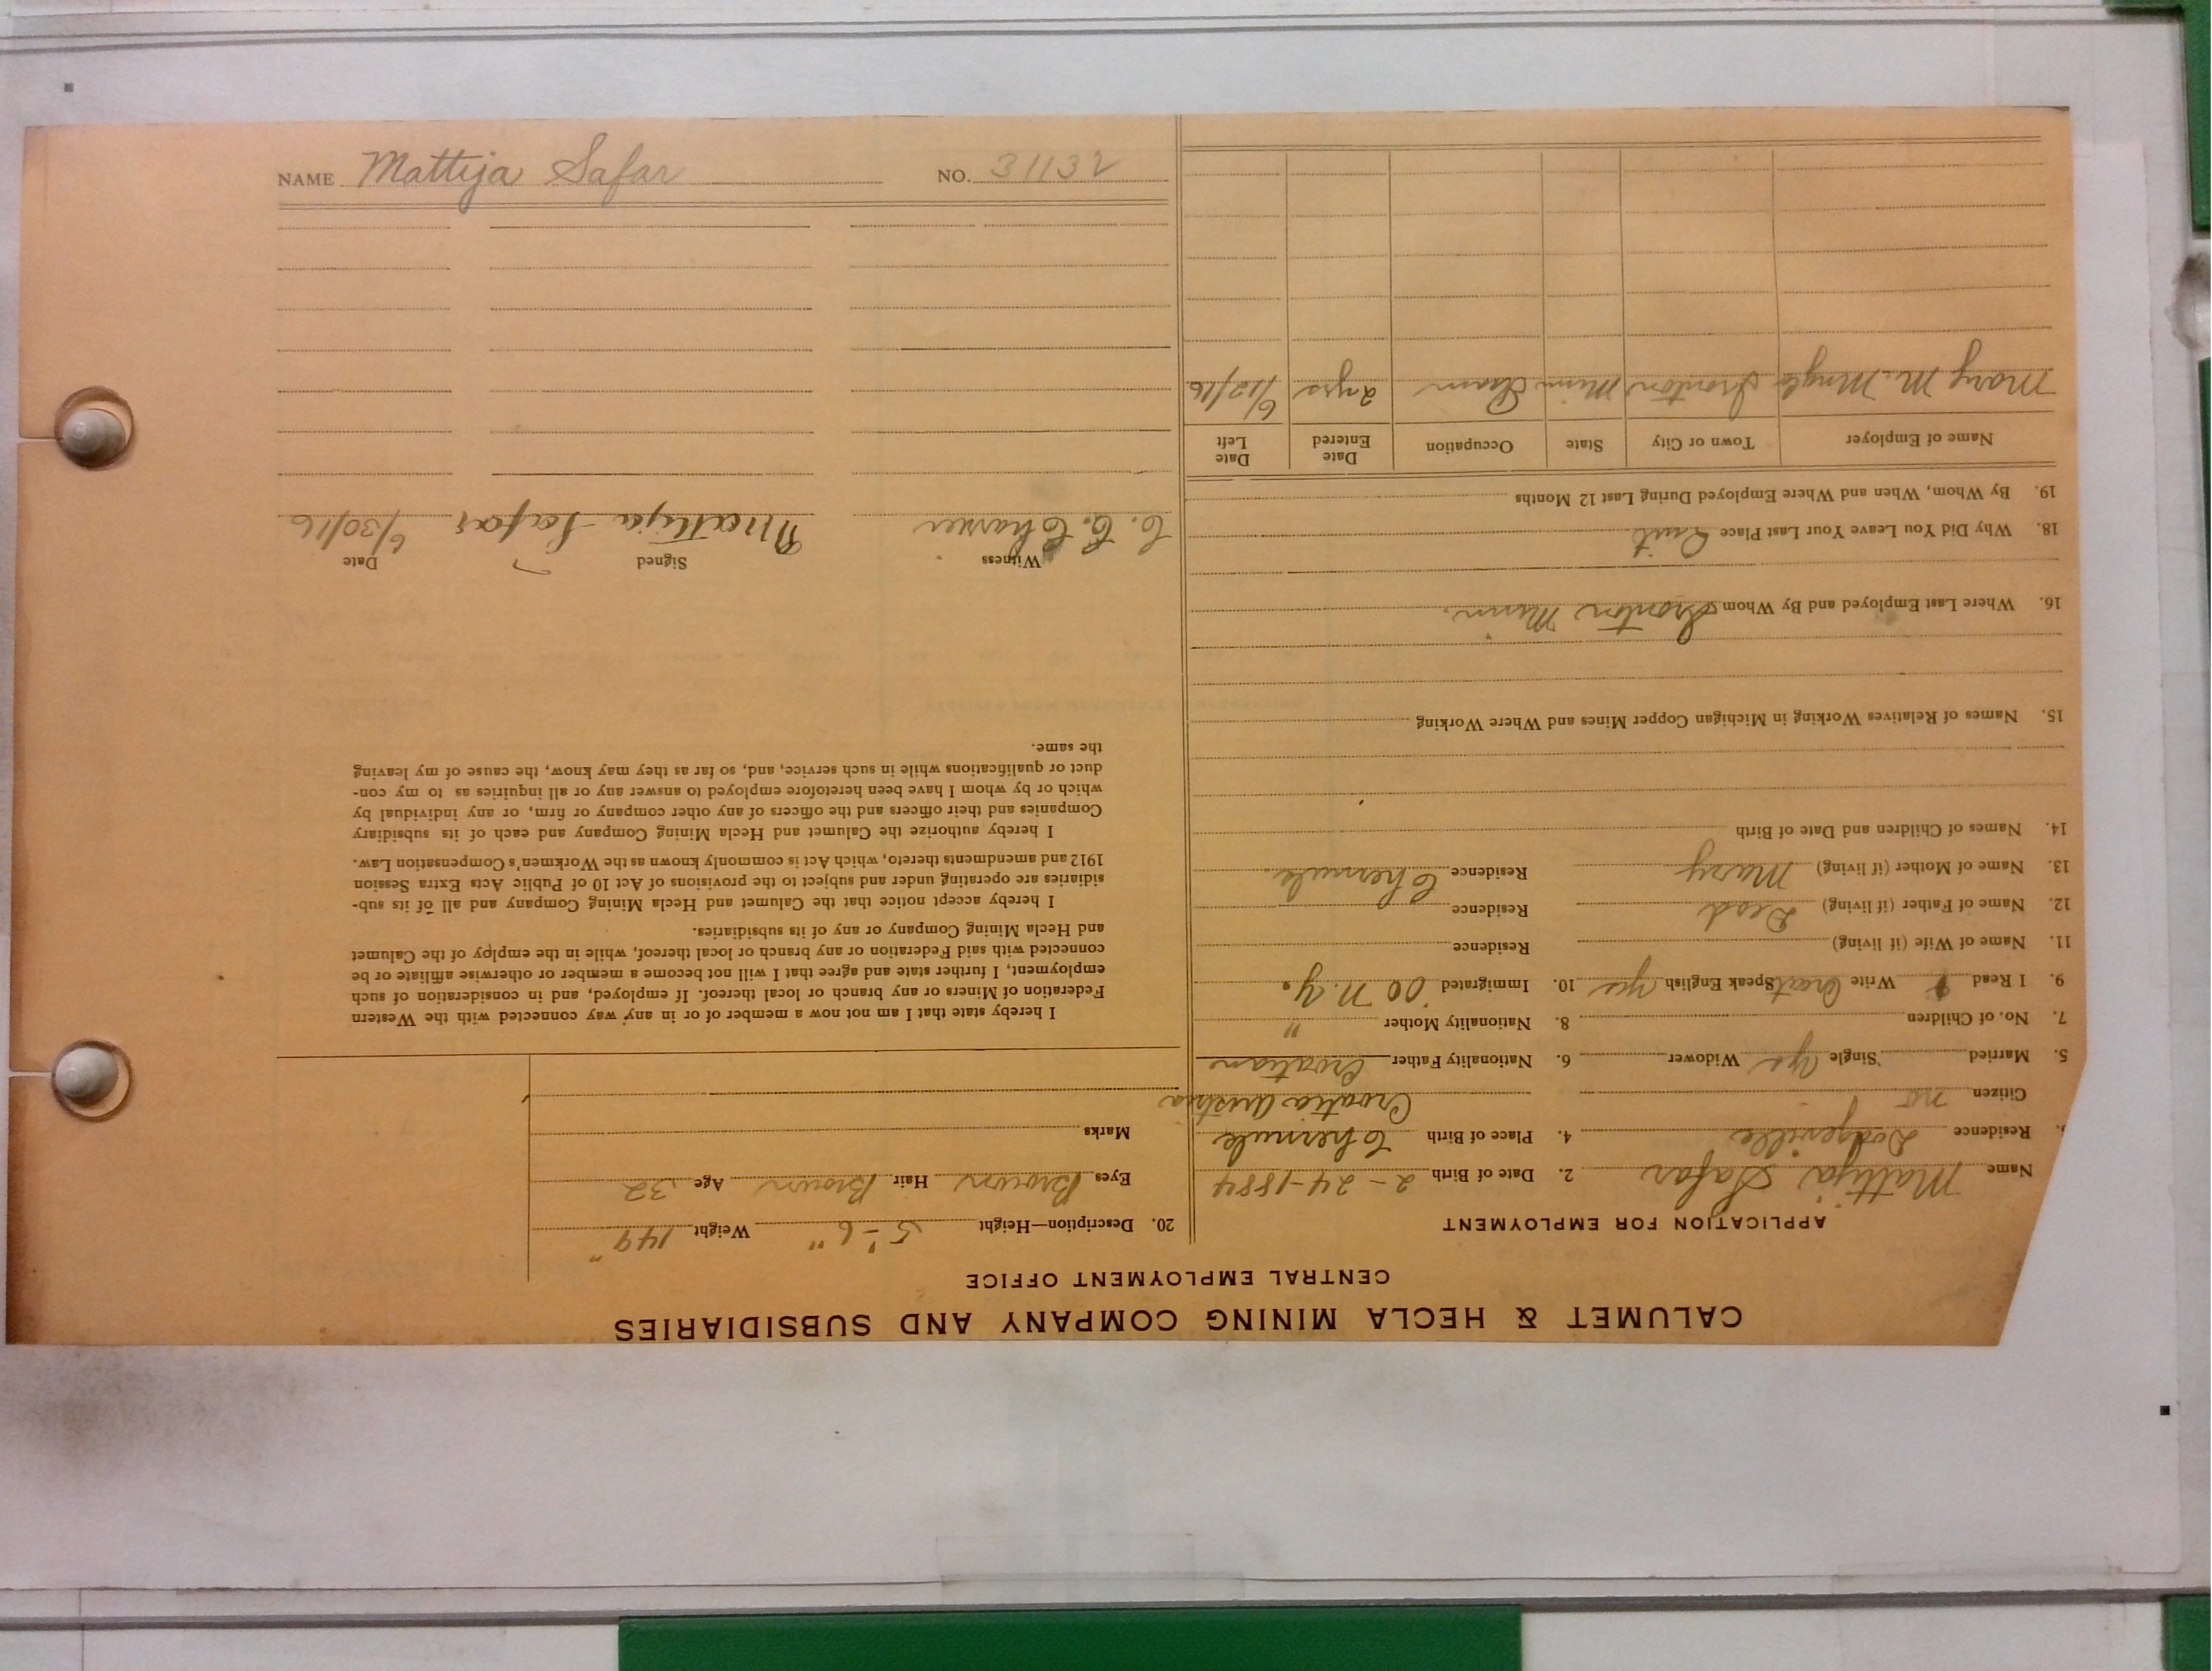 NAME Mattija Safar NO. 31132
CALUMET & HECLA MINING COMPANY AND SUBSIDIARIES
CENTRAL EMPLOYMENT OFFICE
APPLICATION FOR EMPLOYMENT
Name Mattija Safar 2. Date of Birth 2-24-1884
Residence Dodgeville 4. Place of Birth
Citizen no Croatia Austria
5. Married Single yes Widower 6. Nationality Father Croatian
7. No. of Children 8. Nationality Mother "
9. I Read Write Croat Speak English yes 10. Immigrated '00 N.Y.
11. Name of Wife (if living) Residence
12. Name of Father (if living) Dead Residence
13. Name of Mother (if living) Mary Residence
14. Names of Children and Date of Birth
15. Names of Relatives Working in Michigan Copper Mines and Where Working
16. Where Last Employed and By Whom Ironton Minn.
18. Why Did You Leave Your Last Place Quit
19. By Whom, When and Where Employed During Last 12 Months
Name of Employer Town or City State Occupation Date Entered Date Left
Mary M. Ironton Minn 2 yrs 6/12/16
20. Description—Height 5'-6" Weight 149
Eyes Brown Hair Brown Age 32
Marks
I hereby state that I am not now a member of or in any way connected with the Western
Federation of Miners or any branch or local thereof. If employed, and in consideration of such
employment, I further state and agree that I will not become a member or otherwise affiliate or be
connected with said Federation or any branch or local thereof, while in the employ of the Calumet
and Hecla Mining Company or any of its subsidiaries.
I hereby accept notice that the Calumet and Hecla Mining Company and all of its sub-
sidiaries are operating under and subject to the provisions of Act 10 of Public Acts Extra Session
1912 and amendments thereto, which Act is commonly known as the Workmen's Compensation Law.
I hereby authorize the Calumet and Hecla Mining Company and each of its subsidiary
Companies and their officers and the officers of any other company or firm, or any individual by
which or by whom I have been heretofore employed to answer any or all inquiries as to my con-
duct or qualifications while in such service, and, so far as they may know, the cause of my leaving
the same.
Witness Signed Date
Mattija Safar 6/30/16